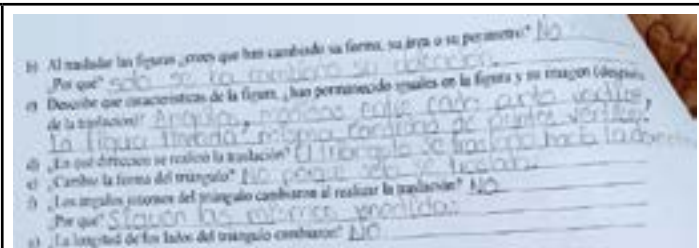 b) Al trasladar las figuras ¿crees que han cambiado su forma, su área o su perímetro? No
¿Por qué? solo se ha cambiado su
c) Describe que características de la figura, ¿han permanecido iguales en la figura y su imagen (después
de la traslación)? Angulos, entre cada punto vertice,
La figura misma cantidad de puntos vertices.
d) ¿En qué dirección se realizó la traslación? El triangulo se traslado hacia la derecha
e) ¿Cambio la forma del triángulo? No porque solo se traslado.
f) ¿Los ángulos internos del triángulo cambiaron al realizar la traslación? No
¿Por qué? Siguen las mismas medidas.
g) ¿La longitud de los lados del triángulo cambiaron? No